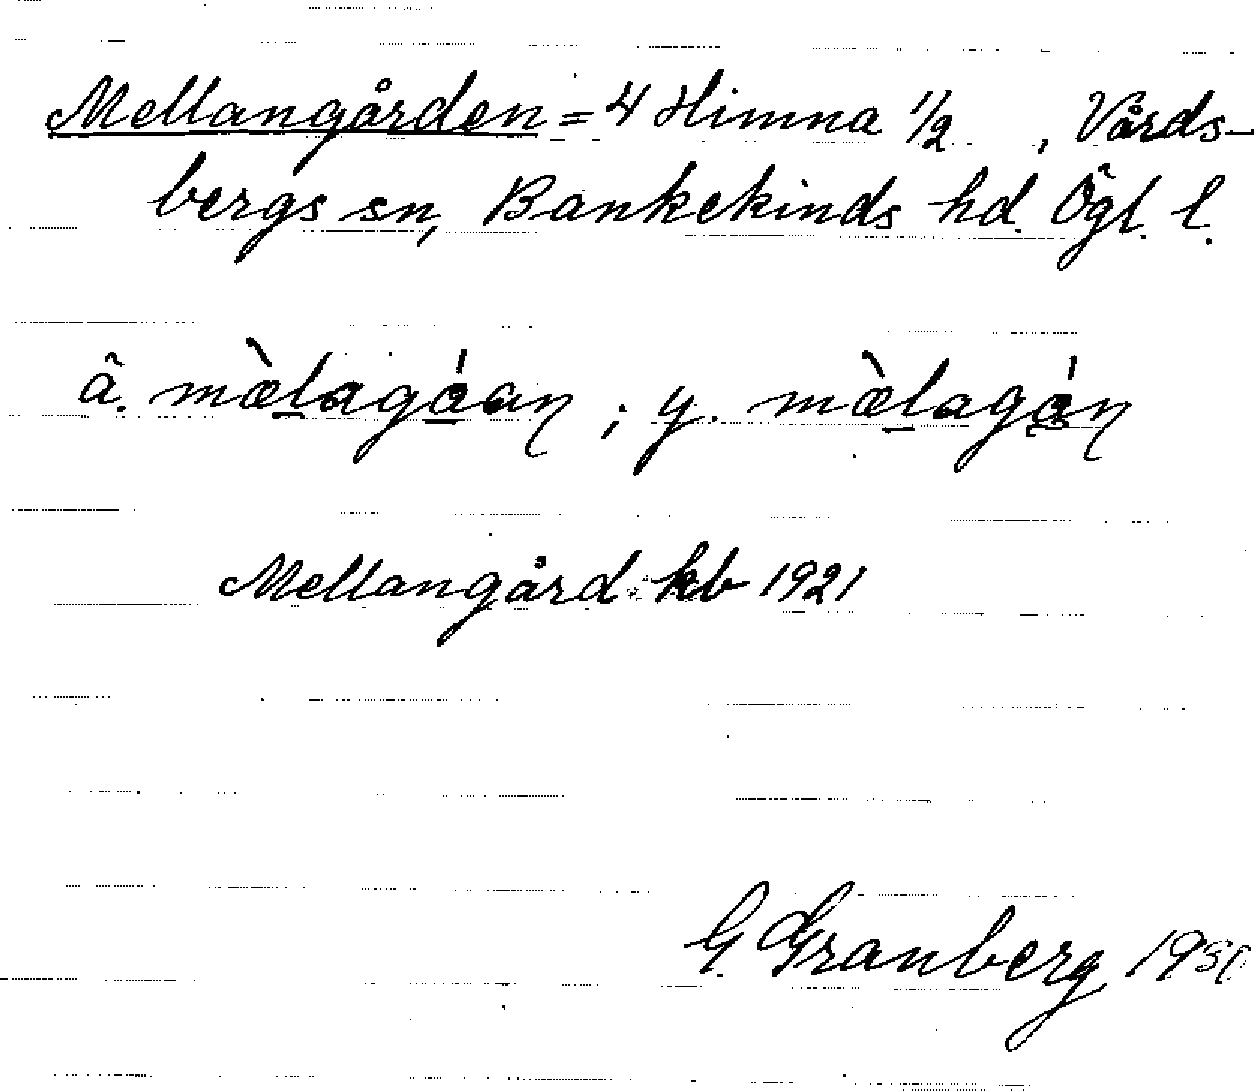 Mellangården = 4 Himna 1/2 , Vårds-
bergs sn, Bankekinds hd. Ögl. l.
ä. mæ̀lagáan ; y. mæ̀lagán
Mellangård kb 1921
G. Granberg 1930